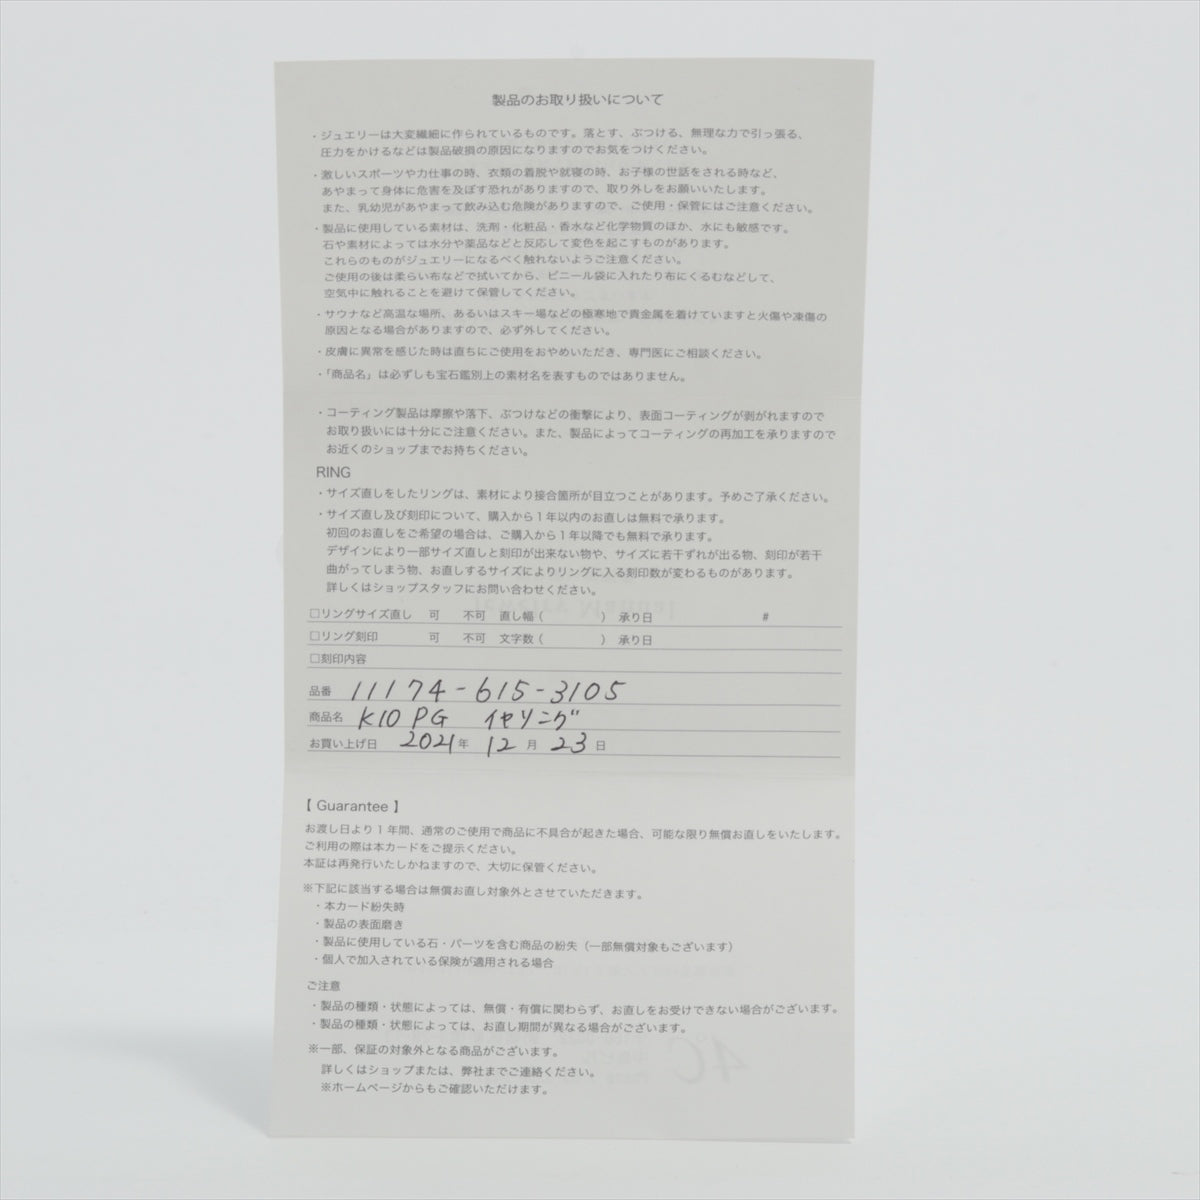 製品のお取り扱いについて
・ジュエリーは大変繊細に作られているものです。落とす、ぶつける、無理な力で引っ張る、
圧力をかけるなどは製品破損の原因になりますのでお気をつけください。
・激しいスポーツや力仕事の時、衣類の着脱や就寝の時、お子様の世話をされる時など、
あやまって身体に危害を及ぼす恐れがありますので、取り外しをお願いいたします。
また、乳幼児があやまって飲み込む危険がありますので、ご使用・保管にはご注意ください。
・製品に使用している素材は、洗剤・化粧品・香水など化学物質のほか、水にも敏感です。
石や素材によっては水分や薬品などと反応して変色を起こすものがあります。
これらのものがジュエリーになるべく触れないようご注意ください。
ご使用の後は柔らい布などで拭いてから、ビニール袋に入れたり布にくるむなどして、
空気中に触れることを避けて保管してください。
・サウナなど高温な場所、あるいはスキー場などの極寒地で貴金属を着けていますと火傷や凍傷の
原因となる場合がありますので、必ず外してください。
・皮膚に異常を感じた時は直ちにご使用をおやめいただき、専門医にご相談ください。
・「商品名」は必ずしも宝石鑑別上の素材名を表すものではありません。
・コーティング製品は摩擦や落下、ぶつけなどの衝撃により、表面コーティングが剥がれますので
お取り扱いには十分にご注意ください。また、製品によってコーティングの再加工を承りますので
お近くのショップまでお持ちください。
RING
・サイズ直しをしたリングは、素材により接合箇所が目立つことがあります。予めご了承ください。
・サイズ直し及び刻印について、購入から1年以内のお直しは無料で承ります。
初回のお直しをご希望の場合は、ご購入から1年以降でも無料で承ります。
デザインにより一部サイズ直しと刻印が出来ない物や、サイズに若干ずれが出る物、刻印が若干
曲がってしまう物、お直しするサイズによりリングに入る刻印数が変わるものがあります。
詳しくはショップスタッフにお問い合わせください。
□リングサイズ直し 可 不可 直し幅( ) 承り日 #
□リング刻印 可 不可 文字数( ) 承り日
□刻印内容
品番 11174-615-3105
商品名 K10 PG イヤリング
お買い上げ日 2021年 12月 23日
【 Guarantee 】
お渡し日より1年間、通常のご使用で商品に不具合が起きた場合、可能な限り無償お直しをいたします。
ご利用の際は本カードをご提示ください。
本証は再発行いたしかねますので、大切に保管ください。
※下記に該当する場合は無償お直し対象外とさせていただきます。
・本カード紛失時
・製品の表面磨き
・製品に使用している石・パーツを含む商品の紛失(一部無償対象もございます)
・個人で加入されている保険が適用される場合
ご注意
・製品の種類・状態によっては、無償・有償に関わらず、お直しをお受けできない場合がございます。
・製品の種類・状態によっては、お直し期間が異なる場合がございます。
※一部、保証の対象外となる商品がございます。
詳しくはショップまたは、弊社までご連絡ください。
※ホームページからもご確認いただけます。